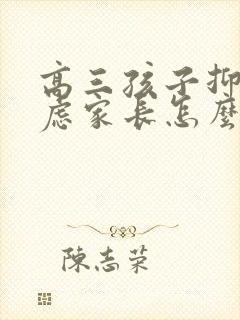 高三孩子抑
虑家长怎麼
陳志荣